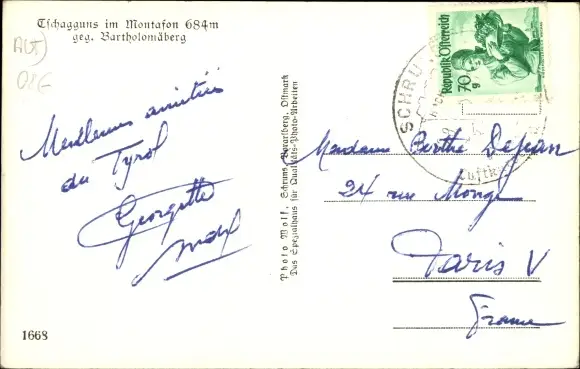 Tschagguns im Montafon 684m
geg. Bartholomäberg
Meilleures amitiés
du Tyrol
Georgette
Photo Wolf, Schruns, Vorarlberg, Ostmark
Das Spezialhaus für Qualitäts-Photo-Arbeiten
1668
Republik Österreich
70 g
SCHRU
Luftk
Madame Berthe
24 rue Monge
Paris V
France